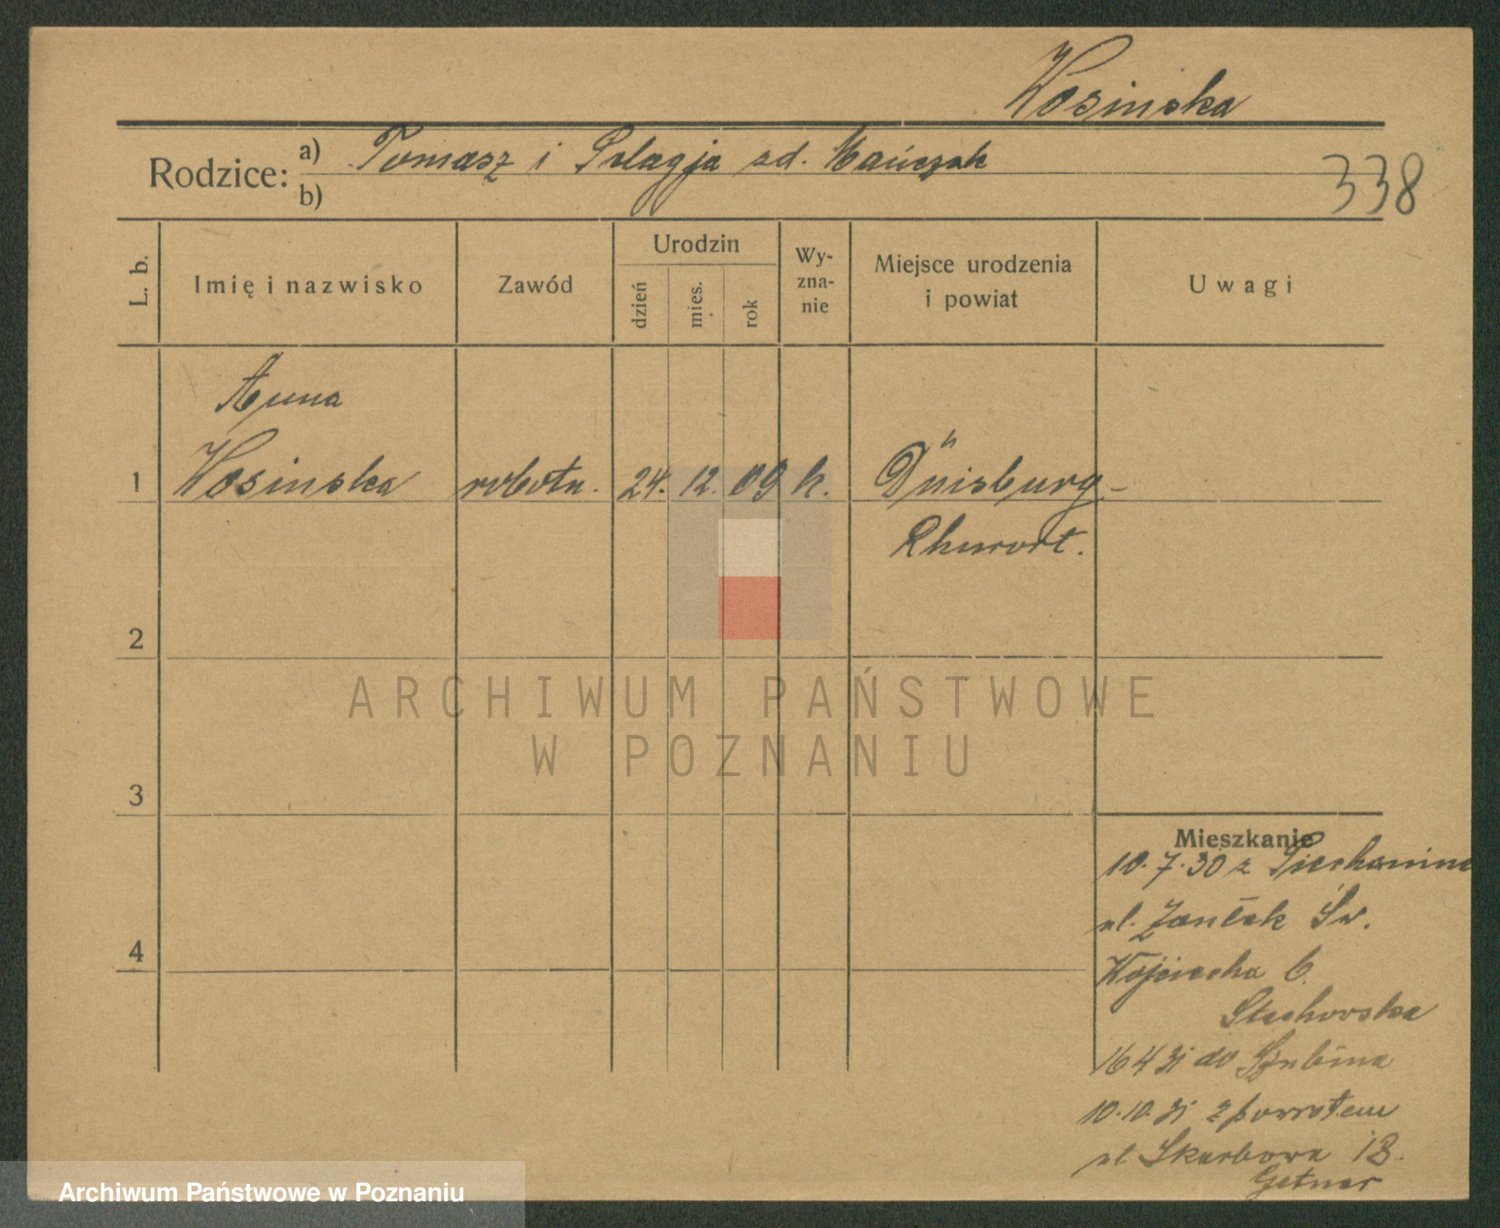 Kosinska
Rodzice: a) Tomasz i Pelagja zd. Kańczak
b)
338
L. b.
Imię i nazwisko
Zawód
Urodzin
dzień
mies.
rok
Wy-
zna-
nie
Miejsce urodzenia
i powiat
Uwagi
Anna
1 Kosinska robotn. 24. 12. 09 k. Duisburg-
Rhurort.
2
3
4
Mieszkanie
10.7.30 z
ul. Zaułek Św.
Wojciecha 6.
Stachowska
16 4 31 do Szubina
10.10.31 z powrotem
ul Skarbowa 18.
Getner
ARCHIWUM PAŃSTWOWE
W POZNANIU
Archiwum Państwowe w Poznaniu